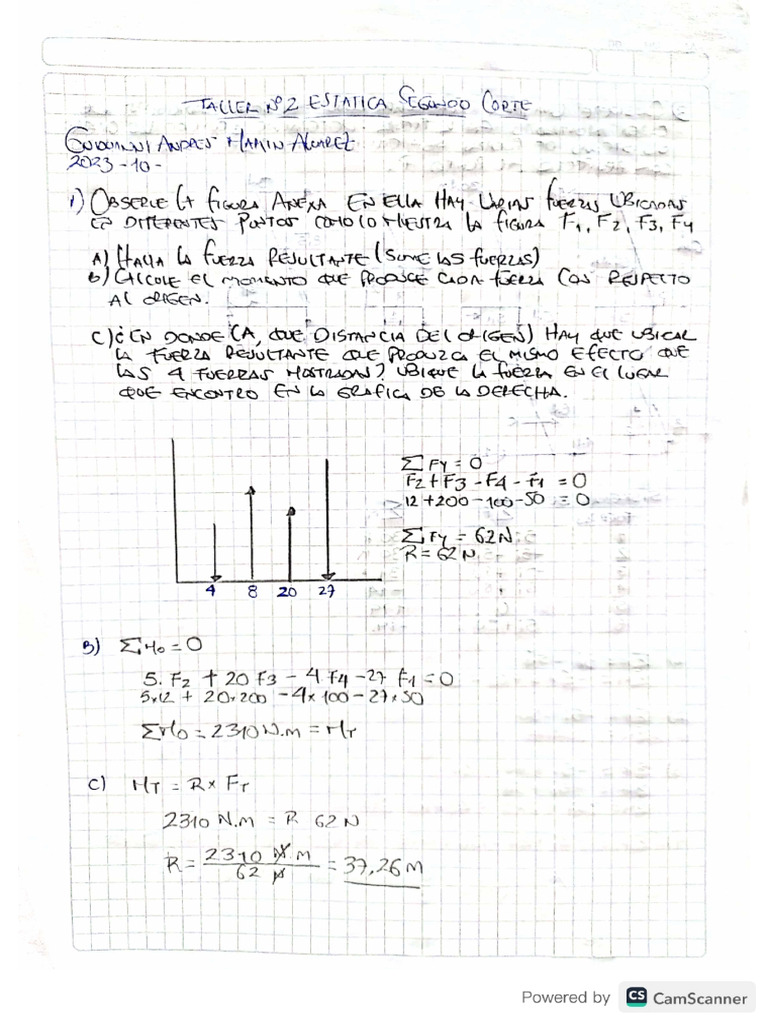 TALLER Nº2 ESTATICA SEGUNDO CORTE
ANDRES MARIN ALVAREZ
2023-10-
1) OBSERVE LA FIGURA ANEXA EN ELLA HAY VARIAS FUERZAS UBICADAS
EN DIFERENTES PUNTOS COMO LO MUESTRA LA FIGURA F1, F2, F3, F4
A) HALLA LA FUERZA RESULTANTE (SUME LAS FUERZAS)
B) CALCULE EL MOMENTO QUE PRODUCE CADA FUERZA CON RESPECTO
AL ORIGEN.
C) ¿EN DONDE (A, QUE DISTANCIA DEL ORIGEN) HAY QUE UBICAR
LA FUERZA RESULTANTE QUE PRODUZCA EL MISMO EFECTO QUE
LAS 4 FUERZAS MOSTRADAS? UBIQUE LA FUERZA EN EL LUGAR
QUE ENCONTRO EN LA GRAFICA DE LA DERECHA.
ΣFY = 0
F2 + F3 - F4 - F1 = 0
12 + 200 - 100 - 50 = 0
ΣFY = 62N
R = 62N
4 8 20 27
B) ΣMo = 0
5. F2 + 20 F3 - 4 F4 - 27 F1 = 0
5x12 + 20.200 - 4x100 - 27x50
ΣMo = 2310 N.m = MT
C) MT = R x FT
2310 N.m = R 62 N
R = 2310 N.m / 62 N = 37,26 M
Powered by CS CamScanner